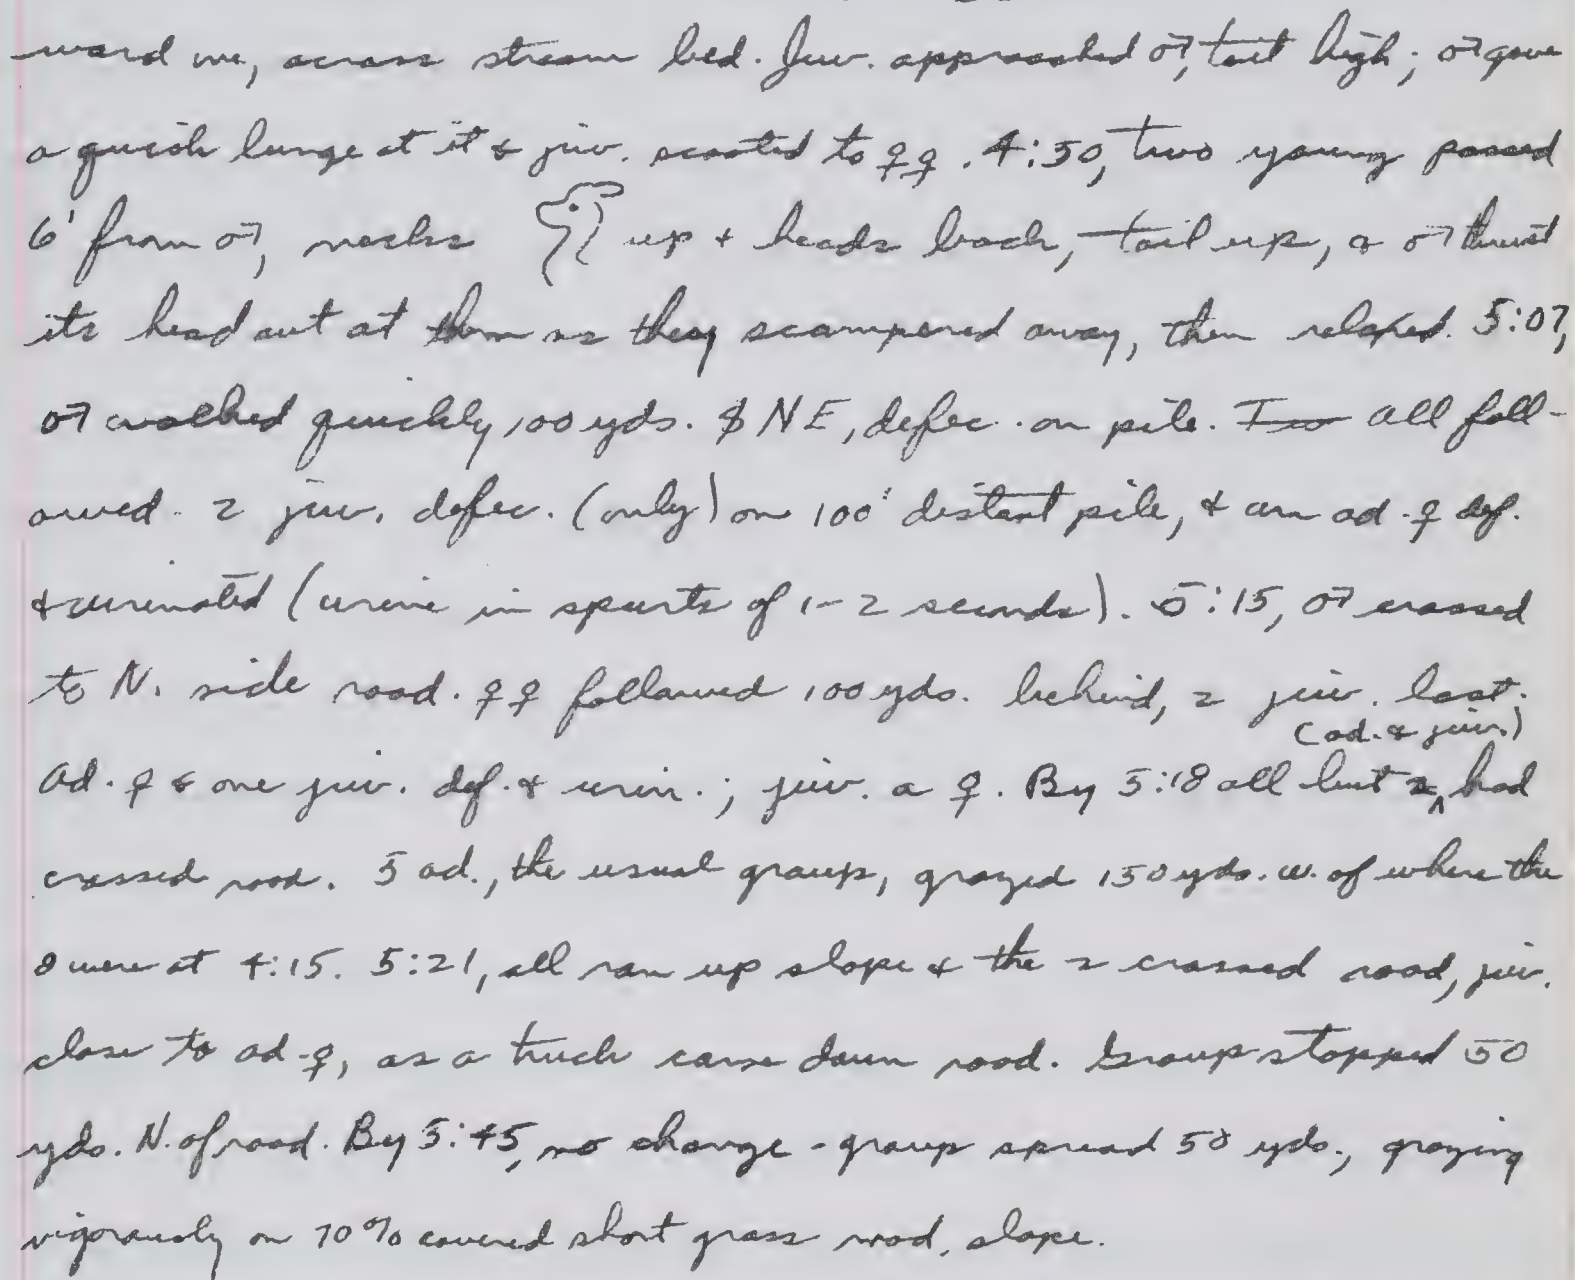 ward me, across stream bed. Juv. approached ♂, tail high; ♂ gave
a quick lunge at it & juv. scooted to ♀♀. 4:50, two young passed
6' from ♂, necks up & heads back, tail up, & ♂ thrust
its head out at them as they scampered away, then relaxed. 5:07,
♂ walked quickly 100 yds. NE, defec. on pile. All foll-
owed. 2 juv. defec. (only) on 100' distant pile, & an ad. ♀ def.
& urinated (urine in spurts of 1-2 seconds). 5:15, ♂ crossed
to N. side road. ♀♀ followed 100 yds. behind, 2 juv. last.
(ad. & juv.)
Ad. ♀ & one juv. def. & urin.; juv. a ♀. By 5:18 all but 2 had
crossed road. 5 ad., the usual group, grazed 150 yds. W. of where the
8 were at 4:15. 5:21, all ran up slope & the 2 crossed road, juv.
close to ad. ♀, as a truck came down road. Group stopped 50
yds. N. of road. By 5:45, no change - group spread 50 yds., grazing
vigorously on 70% covered short grass mod. slope.